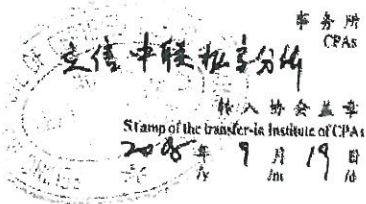 事务所
CPAs
立信中联北京分所
转入协会盖章
Stamp of the transfer-in Institute of CPAs
2008年 9月 19日
/y /m /d